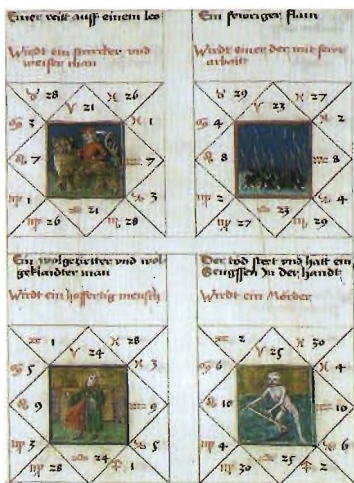 Einer reitt auff einem leo
Wirdt ein starcker vnd
weiser man
♉ 28 ♓ 26
♈ 21
♋ 3 ♓ 1
♌ 7 ♒ 7
♍ 1 ♑ 3
♎ 21
♍ 26 ♏ 28
Ein fewriger flam
Wirdt einer der mit fewr
arbeitt
♉ 29 ♓ 27
♈ 23
♋ 4 ♓ 2
♌ 8 ♒ 8
♍ 2 ♑ 4
♎ 23
♍ 27 ♏ 29
Ein wolgezierter vnd wol
geklaidter man
Wirdt ein hoffertig mensch
1 ♓ 28
♈ 24
♋ 5 ♓ 3
♌ 9 ♒ 9
♍ 3 ♑ 5
♎ 24
♍ 28 ♐ 1
Der tod stett vnd hatt ein
Sengssen In der handt
Wirdt ein Mörder
2 ♓ 30
♈ 25
♋ 6 4
♌ 10 ♒ 10
♍ 4 ♑ 6
♎ 25
♍ 30 ♐ 2